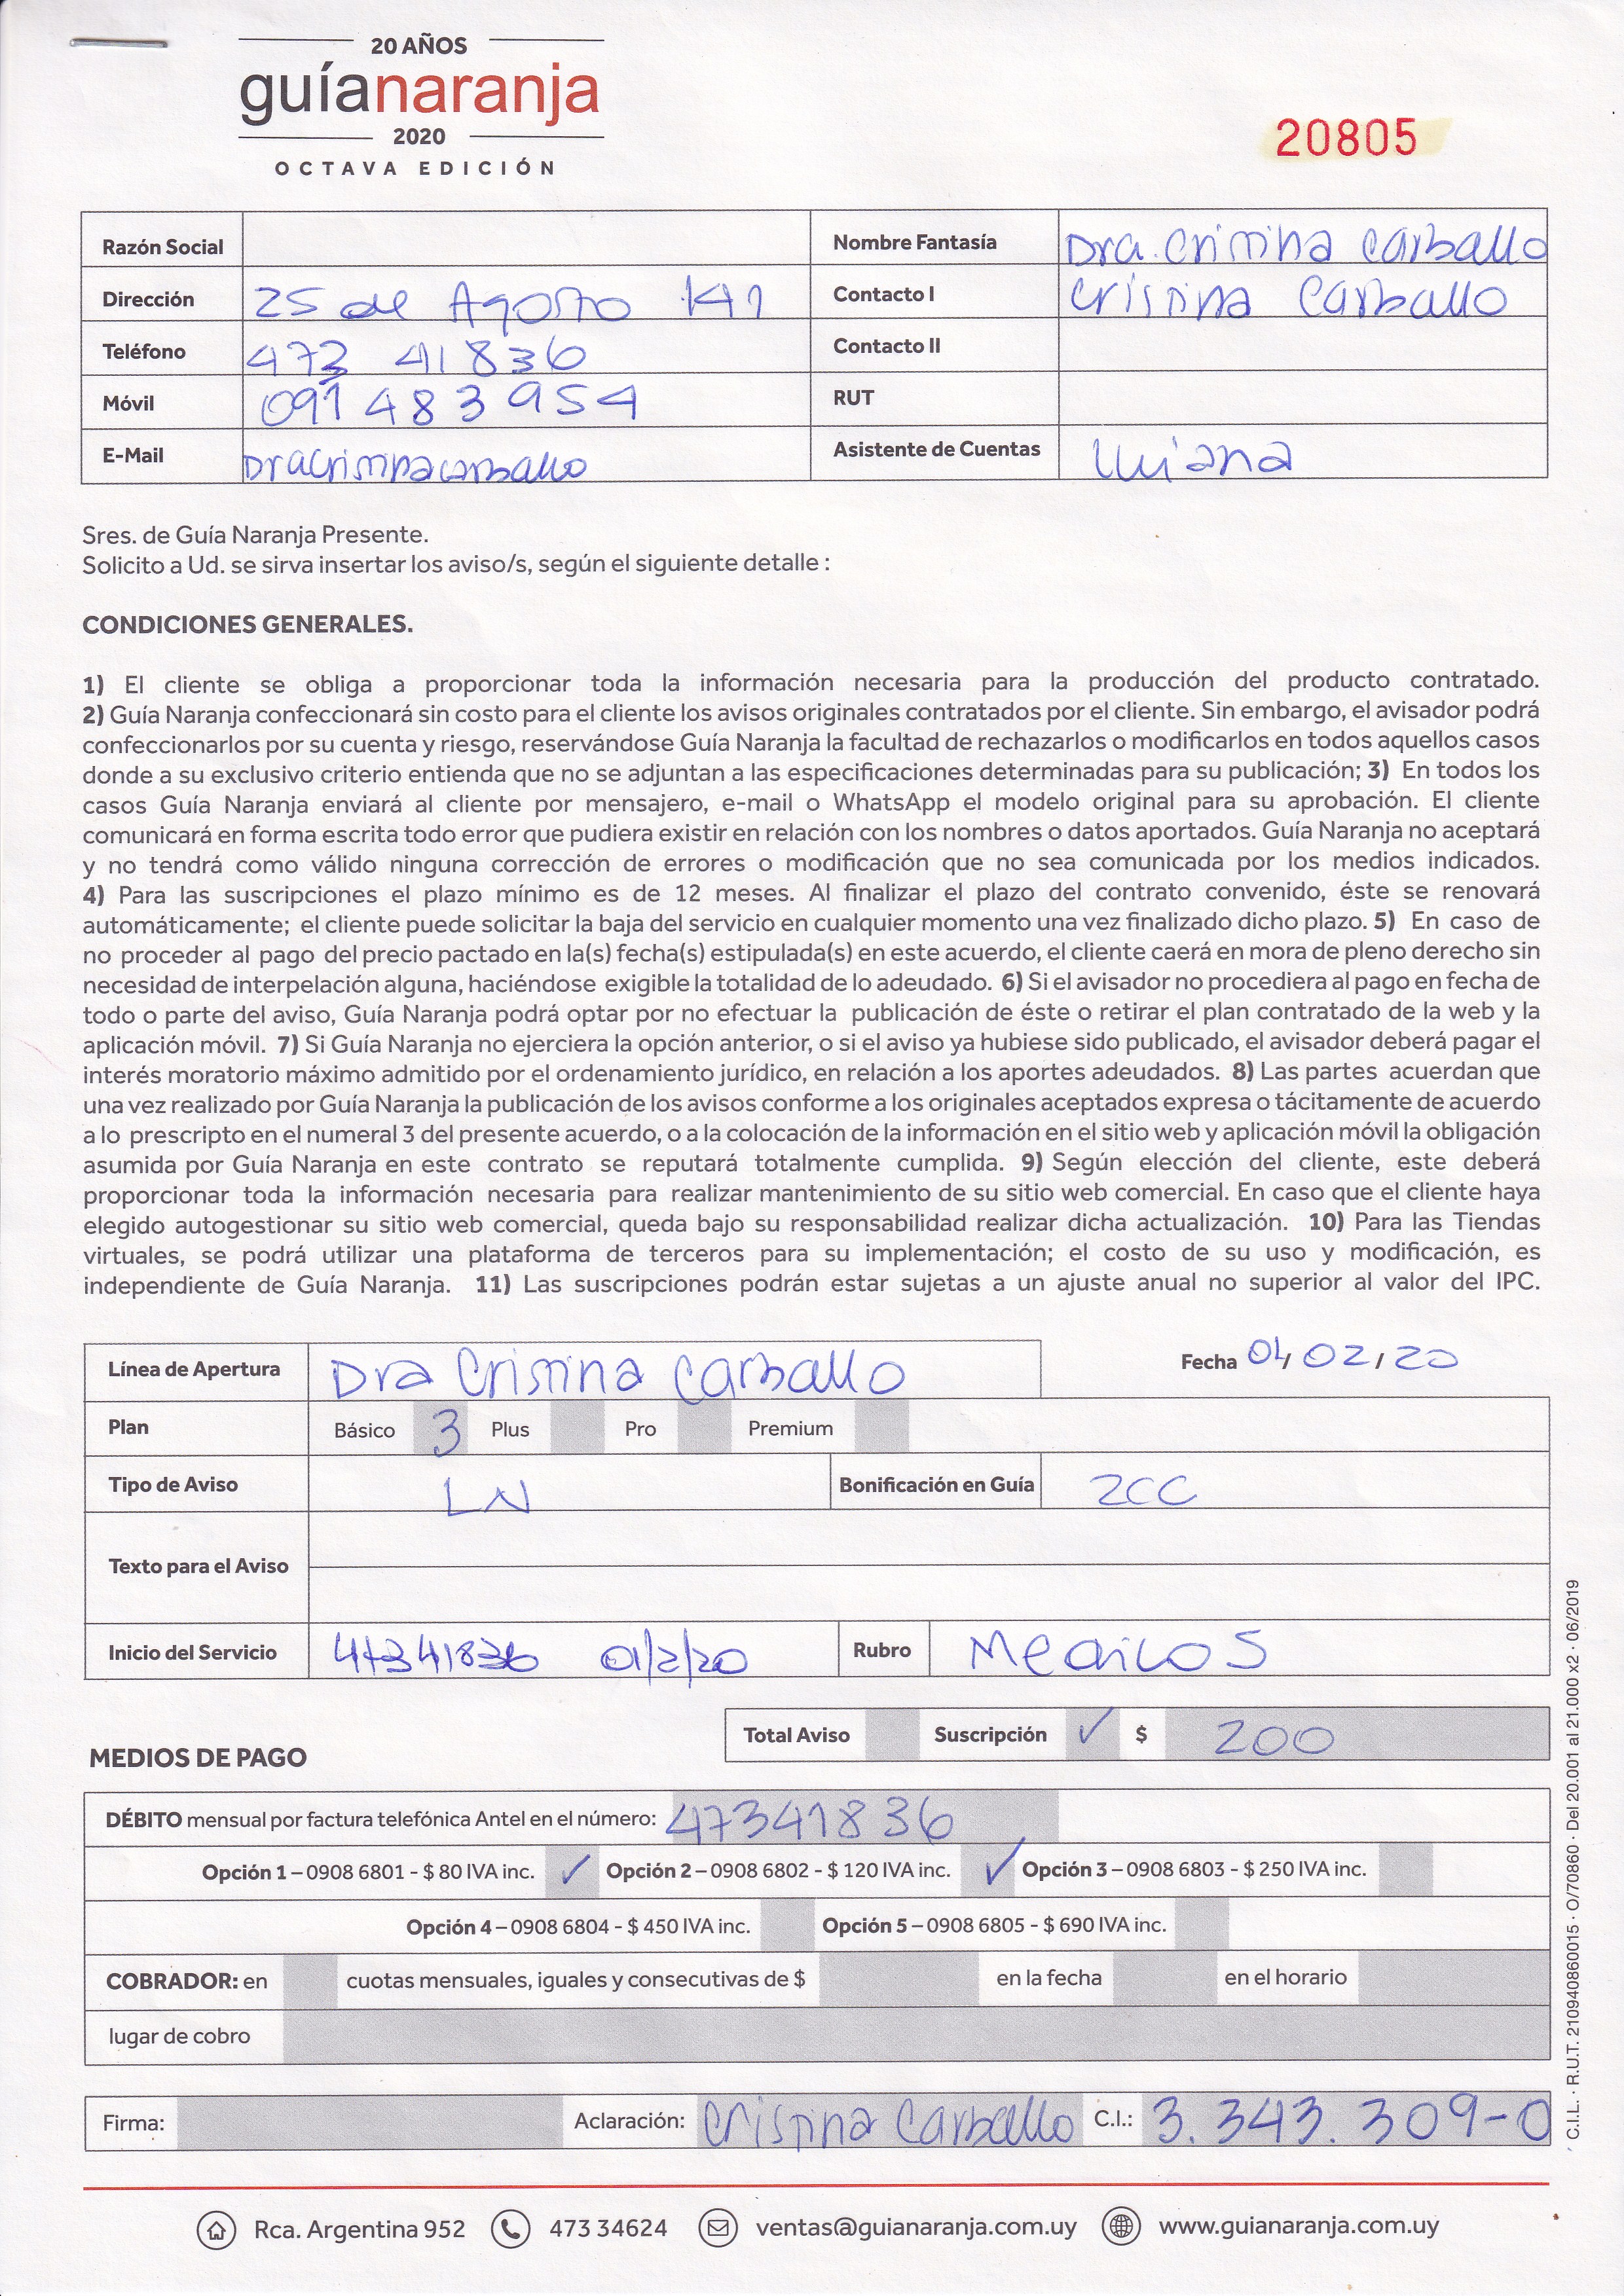 20 AÑOS
guíanaranja
2020
OCTAVA EDICIÓN
20805
Razón Social
Nombre Fantasía Dra. Cristina Carballo
Dirección 25 de Agosto 141
Contacto I Cristina Carballo
Teléfono 473 41836
Contacto II
Móvil 091 483 954
RUT
E-Mail Dracristinacarballo
Asistente de Cuentas
Sres. de Guía Naranja Presente.
Solicito a Ud. se sirva insertar los aviso/s, según el siguiente detalle :
CONDICIONES GENERALES.
1) El cliente se obliga a proporcionar toda la información necesaria para la producción del producto contratado.
2) Guía Naranja confeccionará sin costo para el cliente los avisos originales contratados por el cliente. Sin embargo, el avisador podrá
confeccionarlos por su cuenta y riesgo, reservándose Guía Naranja la facultad de rechazarlos o modificarlos en todos aquellos casos
donde a su exclusivo criterio entienda que no se adjuntan a las especificaciones determinadas para su publicación; 3) En todos los
casos Guía Naranja enviará al cliente por mensajero, e-mail o WhatsApp el modelo original para su aprobación. El cliente
comunicará en forma escrita todo error que pudiera existir en relación con los nombres o datos aportados. Guía Naranja no aceptará
y no tendrá como válido ninguna corrección de errores o modificación que no sea comunicada por los medios indicados.
4) Para las suscripciones el plazo mínimo es de 12 meses. Al finalizar el plazo del contrato convenido, éste se renovará
automáticamente; el cliente puede solicitar la baja del servicio en cualquier momento una vez finalizado dicho plazo. 5) En caso de
no proceder al pago del precio pactado en la(s) fecha(s) estipulada(s) en este acuerdo, el cliente caerá en mora de pleno derecho sin
necesidad de interpelación alguna, haciéndose exigible la totalidad de lo adeudado. 6) Si el avisador no procediera al pago en fecha de
todo o parte del aviso, Guía Naranja podrá optar por no efectuar la publicación de éste o retirar el plan contratado de la web y la
aplicación móvil. 7) Si Guía Naranja no ejerciera la opción anterior, o si el aviso ya hubiese sido publicado, el avisador deberá pagar el
interés moratorio máximo admitido por el ordenamiento jurídico, en relación a los aportes adeudados. 8) Las partes acuerdan que
una vez realizado por Guía Naranja la publicación de los avisos conforme a los originales aceptados expresa o tácitamente de acuerdo
a lo prescripto en el numeral 3 del presente acuerdo, o a la colocación de la información en el sitio web y aplicación móvil la obligación
asumida por Guía Naranja en este contrato se reputará totalmente cumplida. 9) Según elección del cliente, este deberá
proporcionar toda la información necesaria para realizar mantenimiento de su sitio web comercial. En caso que el cliente haya
elegido autogestionar su sitio web comercial, queda bajo su responsabilidad realizar dicha actualización. 10) Para las Tiendas
virtuales, se podrá utilizar una plataforma de terceros para su implementación; el costo de su uso y modificación, es
independiente de Guía Naranja. 11) Las suscripciones podrán estar sujetas a un ajuste anual no superior al valor del IPC.
Línea de Apertura Dra Cristina Carballo
Fecha 01/02/20
Plan Básico 3 Plus Pro Premium
Tipo de Aviso LN Bonificación en Guía 2CC
Texto para el Aviso
Inicio del Servicio 47341836 01/2/20 Rubro Medicos
Total Aviso Suscripción ✓ $ 200
MEDIOS DE PAGO
DÉBITO mensual por factura telefónica Antel en el número: 47341836
Opción 1 – 0908 6801 - $ 80 IVA inc. ✓ Opción 2 – 0908 6802 - $ 120 IVA inc. ✓ Opción 3 – 0908 6803 - $ 250 IVA inc.
Opción 4 – 0908 6804 - $ 450 IVA inc. Opción 5 – 0908 6805 - $ 690 IVA inc.
COBRADOR: en cuotas mensuales, iguales y consecutivas de $ en la fecha en el horario
lugar de cobro
Firma: Aclaración: Cristina Carballo C.I.: 3.343.309-0
Rca. Argentina 952 473 34624 ventas@guianaranja.com.uy www.guianaranja.com.uy
C.I.L. · R.U.T. 210940860015 · O/70860 · Del 20.001 al 21.000 x2 · 06/2019